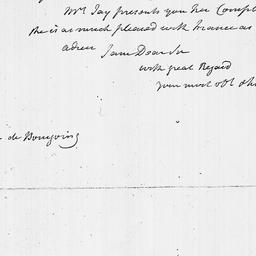 Mrs Jay presents you her Compl
she is as much pleased with France as
adieu I am Dear Sir
with great Regard
your most obt
de Bourgoing